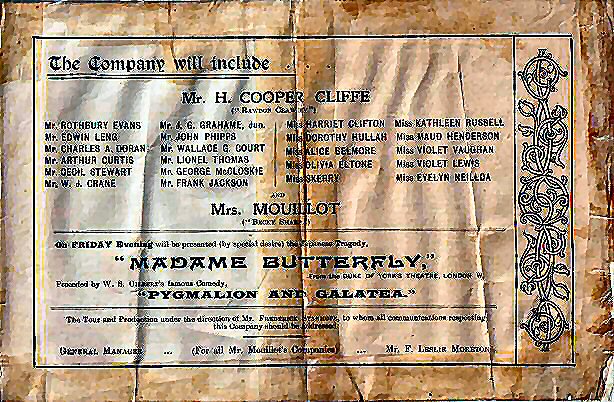 The Company will include
Mr. H. COOPER CLIFFE
("RAWDON CRAWLEY")
Mr. ROTHBURY EVANS Mr. J. G. GRAHAME, Jun. Miss HARRIET CLIFTON Miss KATHLEEN RUSSELL
Mr. EDWIN LENG Mr. JOHN PHIPPS Miss DOROTHY HULLAH Miss MAUD HENDERSON
Mr. CHARLES A. DORAN Mr. WALLACE G. COURT Miss ALICE BELMORE Miss VIOLET VAUGHAN
Mr. ARTHUR CURTIS Mr. LIONEL THOMAS Miss OLIVIA ELTONE Miss VIOLET LEWIS
Mr. CECIL STEWART Mr. GEORGE McCLOSKIE Miss SKERRY Miss EVELYN NEILLDA
Mr. W. J. CRANE Mr. FRANK JACKSON
AND
Mrs. MOUILLOT
("BECKY SHARP")
On FRIDAY Evening will be presented (by special desire) the Japanese Tragedy,
"MADAME BUTTERFLY,"
From the DUKE OF YORK'S THEATRE, LONDON W.
Preceded by W. S. GILBERT'S famous Comedy,
"PYGMALION AND GALATEA."
The Tour and Production under the direction of Mr. FREDERICK to whom all communications respecting
this Company should be addressed
GENERAL MANAGER ... (For all Mr. Mouillot's Companies) ... Mr. F. LESLIE MORETON